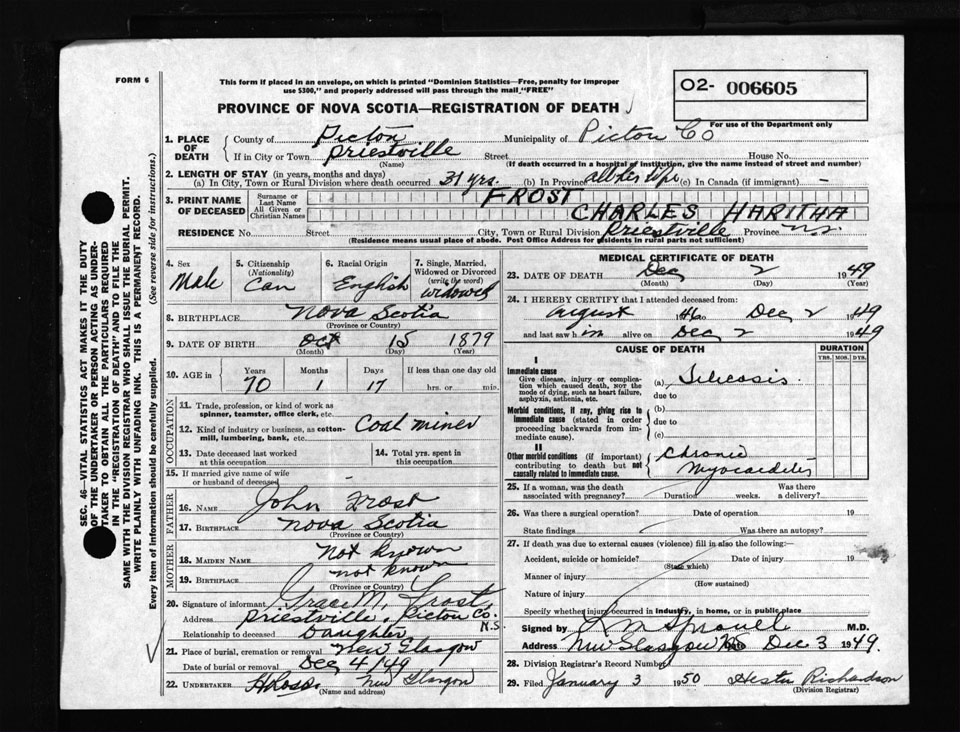 FORM 6
This form if placed in an envelope, on which is printed "Dominion Statistics—Free, penalty for improper
use $300," and properly addressed will pass through the mail "FREE"
PROVINCE OF NOVA SCOTIA—REGISTRATION OF DEATH
02- 006605
For use of the Department only
1. PLACE OF DEATH
County of Pictou Municipality of Pictou Co
If in City or Town Priestville Street House No.
(Name) (If death occurred in a hospital or institution, give the name instead of street and number)
2. LENGTH OF STAY (in years, months and days)
(a) In City, Town or Rural Division where death occurred 31 yrs. (b) In Province all her life (c) In Canada (if immigrant) –
3. PRINT NAME OF DECEASED
Surname or Last Name FROST
All Given or Christian Names CHARLES HARITHA
RESIDENCE No. Street City, Town or Rural Division Priestville Province N.S.
(Residence means usual place of abode. Post Office Address for residents in rural parts not sufficient)
4. Sex
Male
5. Citizenship
(Nationality)
Can
6. Racial Origin
English
7. Single, Married,
Widowed or Divorced
(write the word)
widowed
8. BIRTHPLACE Nova Scotia
(Province or Country)
9. DATE OF BIRTH Oct 15 1879
(Month) (Day) (Year)
10. AGE in Years Months Days If less than one day old
70 1 17 hrs. or min.
OCCUPATION
11. Trade, profession, or kind of work as
spinner, teamster, office clerk, etc.
12. Kind of industry or business, as cotton-
mill, lumbering, bank, etc.
Coal miner
13. Date deceased last worked
at this occupation
14. Total yrs. spent in
this occupation
15. If married give name of wife
or husband of deceased -
FATHER
16. Name John Frost
17. Birthplace Nova Scotia
(Province or Country)
MOTHER
18. MAIDEN NAME Not known
19. Birthplace not known
(Province or Country)
20. Signature of informant Grace M. Frost
Address Priestville, Pictou Co. N.S.
Relationship to deceased Daughter
21. Place of burial, cremation or removal New Glasgow
Date of burial or removal Dec 4/49
22. UNDERTAKER New Glasgow
(Name and address)
MEDICAL CERTIFICATE OF DEATH
23. DATE OF DEATH Dec 2 1949
(Month) (Day) (Year)
24. I HEREBY CERTIFY that I attended deceased from:
August 1946 to Dec 2 1949
and last saw him alive on Dec 2 1949
CAUSE OF DEATH
DURATION
YRS. MOS. DYS.
I
Immediate cause
Give disease, injury or complica-
tion which caused death, not the
mode of dying, such as heart failure,
asphyxia, asthenia, etc.
(a) Silicosis.
due to
Morbid conditions, if any, giving rise to
immediate cause (stated in order
proceeding backwards from im-
mediate cause).
(b)
due to
(c)
II
Other morbid conditions (if important)
contributing to death but not
causally related to immediate cause.
Chronic
Myocarditis
25. If a woman, was the death
associated with pregnancy? Duration weeks. Was there
a delivery?
26. Was there a surgical operation? Date of operation 19
State findings Was there an autopsy?
27. If death was due to external causes (violence) fill in also the following:—
Accident, suicide or homicide? Date of injury 19
(State which)
Manner of injury
(How sustained)
Nature of injury
Specify whether injury occurred in industry, in home, or in public place
Signed by M.D.
Address New Glasgow NS Date Dec 3 1949.
28. Division Registrar's Record Number
29. Filed January 3 1950 Hester Richardson
(Division Registrar)
SEC. 46—VITAL STATISTICS ACT MAKES IT THE DUTY
OF THE UNDERTAKER OR PERSON ACTING AS UNDER-
TAKER TO OBTAIN ALL THE PARTICULARS REQUIRED
IN THE "REGISTRATION OF DEATH" AND TO FILE THE
SAME WITH THE DIVISION REGISTRAR WHO SHALL ISSUE THE BURIAL PERMIT.
WRITE PLAINLY WITH UNFADING INK. THIS IS A PERMANENT RECORD.
Every item of information should be carefully supplied. (See reverse side for instructions.)